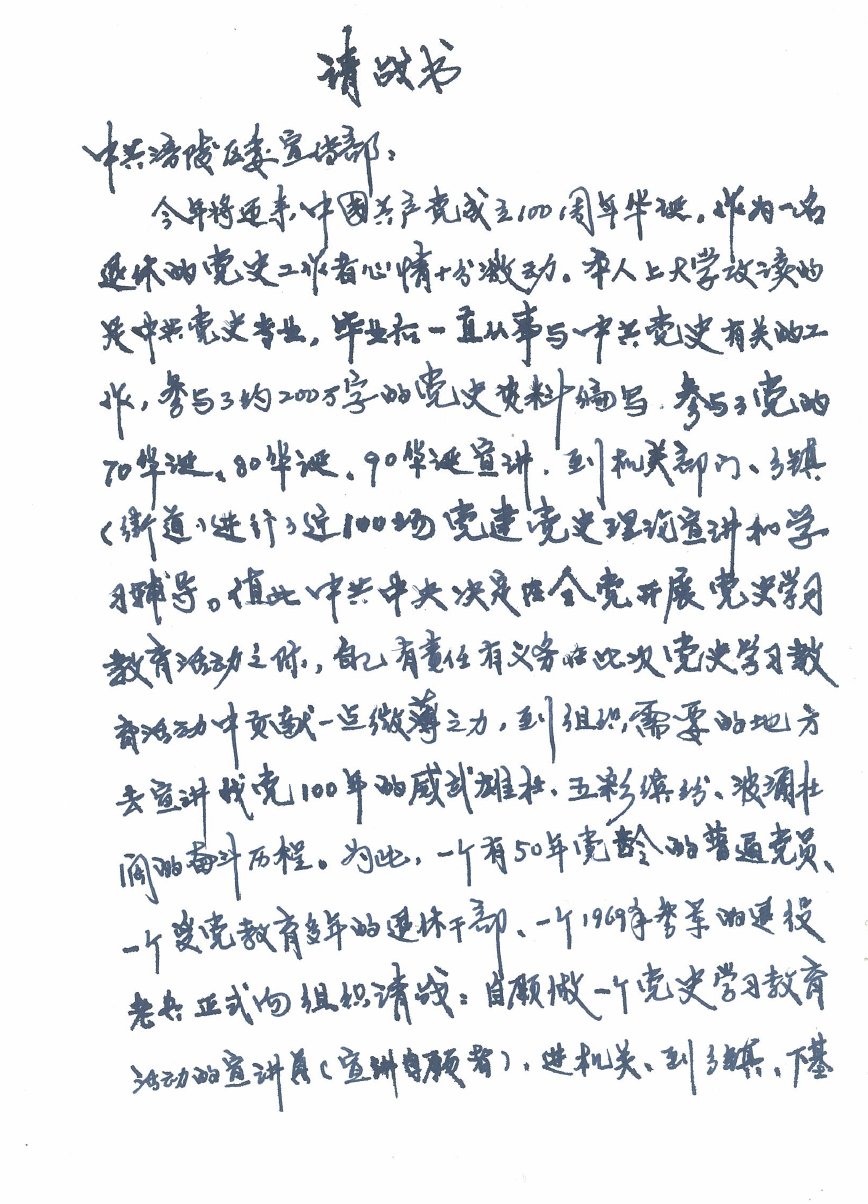 请战书
中共涪陵区委宣传部：
今年将迎来中國共产党成立100周年华诞，作为一名
退休的党史工作者心情十分激动。本人上大学攻读的
是中共党史专业，毕业后一直从事与中共党史有关的工
作，参与了约200万字的党史资料编写，参与了党的
70华诞、80华诞、90华诞宣讲，到机关部门、乡镇
（街道）进行了近100场党建党史理论宣讲和学
习辅导。值此中共中央决定在全党开展党史学习
教育活动之际，自己有责任有义务在此次党史学习教
育活动中贡献一点微薄之力，到组织需要的地方
去宣讲我党100年的威武雄壮、五彩缤纷、波澜壮
阔的奋斗历程。为此，一个有50年党龄的普通党员、
一个受党教育多年的退休干部、一个1969年参军的退役
老兵正式向组织请战：自愿做一个党史学习教育
活动的宣讲员（宣讲自愿者），进机关、到乡镇、下基